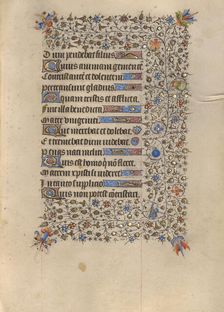 Dum pendebat filius
Cuius animam gementem
Contristantem et dolentem
Pertransivit gladius
O quam tristis et afflicta
fuit illa benedicta
mater unigeniti
Que merebat et dolebat
Et tremebat dum videbat
penas nati incliti
Quis est homo qui non fleret
matrem xpisti si videret
In tanto supplicio
Quis non posset contristari